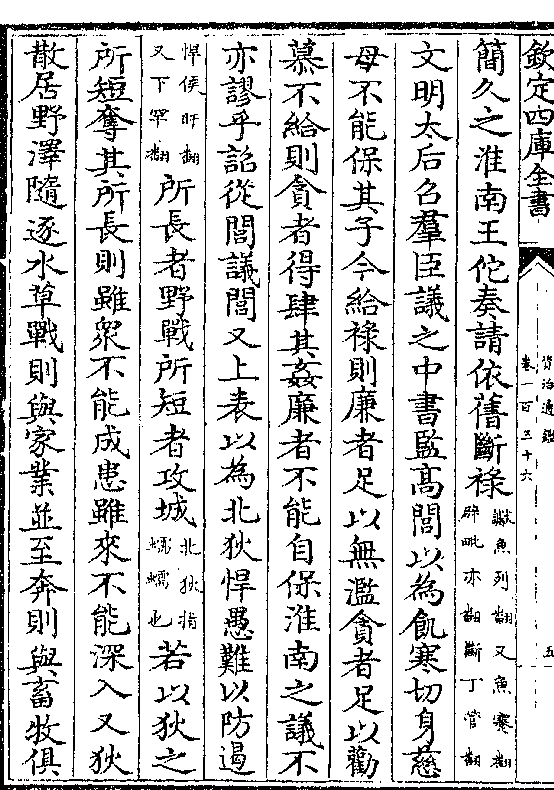 欽定四庫全書
資治通鑑
卷一百三十六
五
簡久之淮南王佗奏請依舊斷祿讞魚列翻又魚蹇翻
辟毗亦翻斷丁管翻
文明太后召羣臣議之中書監高閭以為飢寒切身慈
母不能保其子今給祿則廉者足以無濫貪者足以勸
慕不給則貪者得肆其姦廉者不能自保淮南之議不
亦謬乎詔從閭議閭又上表以為北狄悍愚難以防遏
悍侯旰翻
又下罕翻所長者野戰所短者攻城北狄指
蠕蠕也若以狄之
所短奪其所長則雖衆不能成患雖來不能深入又狄
散居野澤隨逐水草戰則與家業並至奔則與畜牧俱